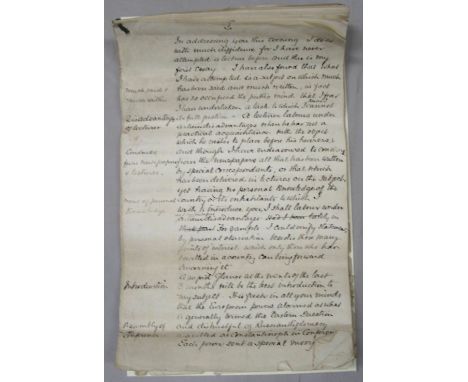 In addressing you this evening I do so
with much diffidence for I have never
attempted a lecture before and this is my
first essay. I have also found that what
I have attempted is a subject on which much
much said & has been said and much written, in fact
much written has so occupied the public mind that I fear
I have undertaken a task to which I cannot
Disadvantages do full justice - A lecturer labours under
of lecturer disadvantages when he has not a
practical acquaintance with the object
which he wishes to place before his hearers,
and though I have endeavoured to
from newspapers from the newspapers all that has been written
& lectures. by special correspondents, or that which
has been delivered in lectures on the subject,
yet having no personal knowledge of the
country or its inhabitants to which I
knowledge wish to introduce you, I shall labour under
disadvantages
For example I could verify
by personal observation besides
points of interest which only those who have
travelled in a country can bring forward
concerning it
A rapid glance at the events of the last
Introduction months will be the best introduction to
my subject. It is fresh in all your minds
that the European powers alarmed at what
is generally termed the Eastern Question
Assembly of and distrustful of Russian diplomacy
at Constantinople in
Each power sent a special envoy